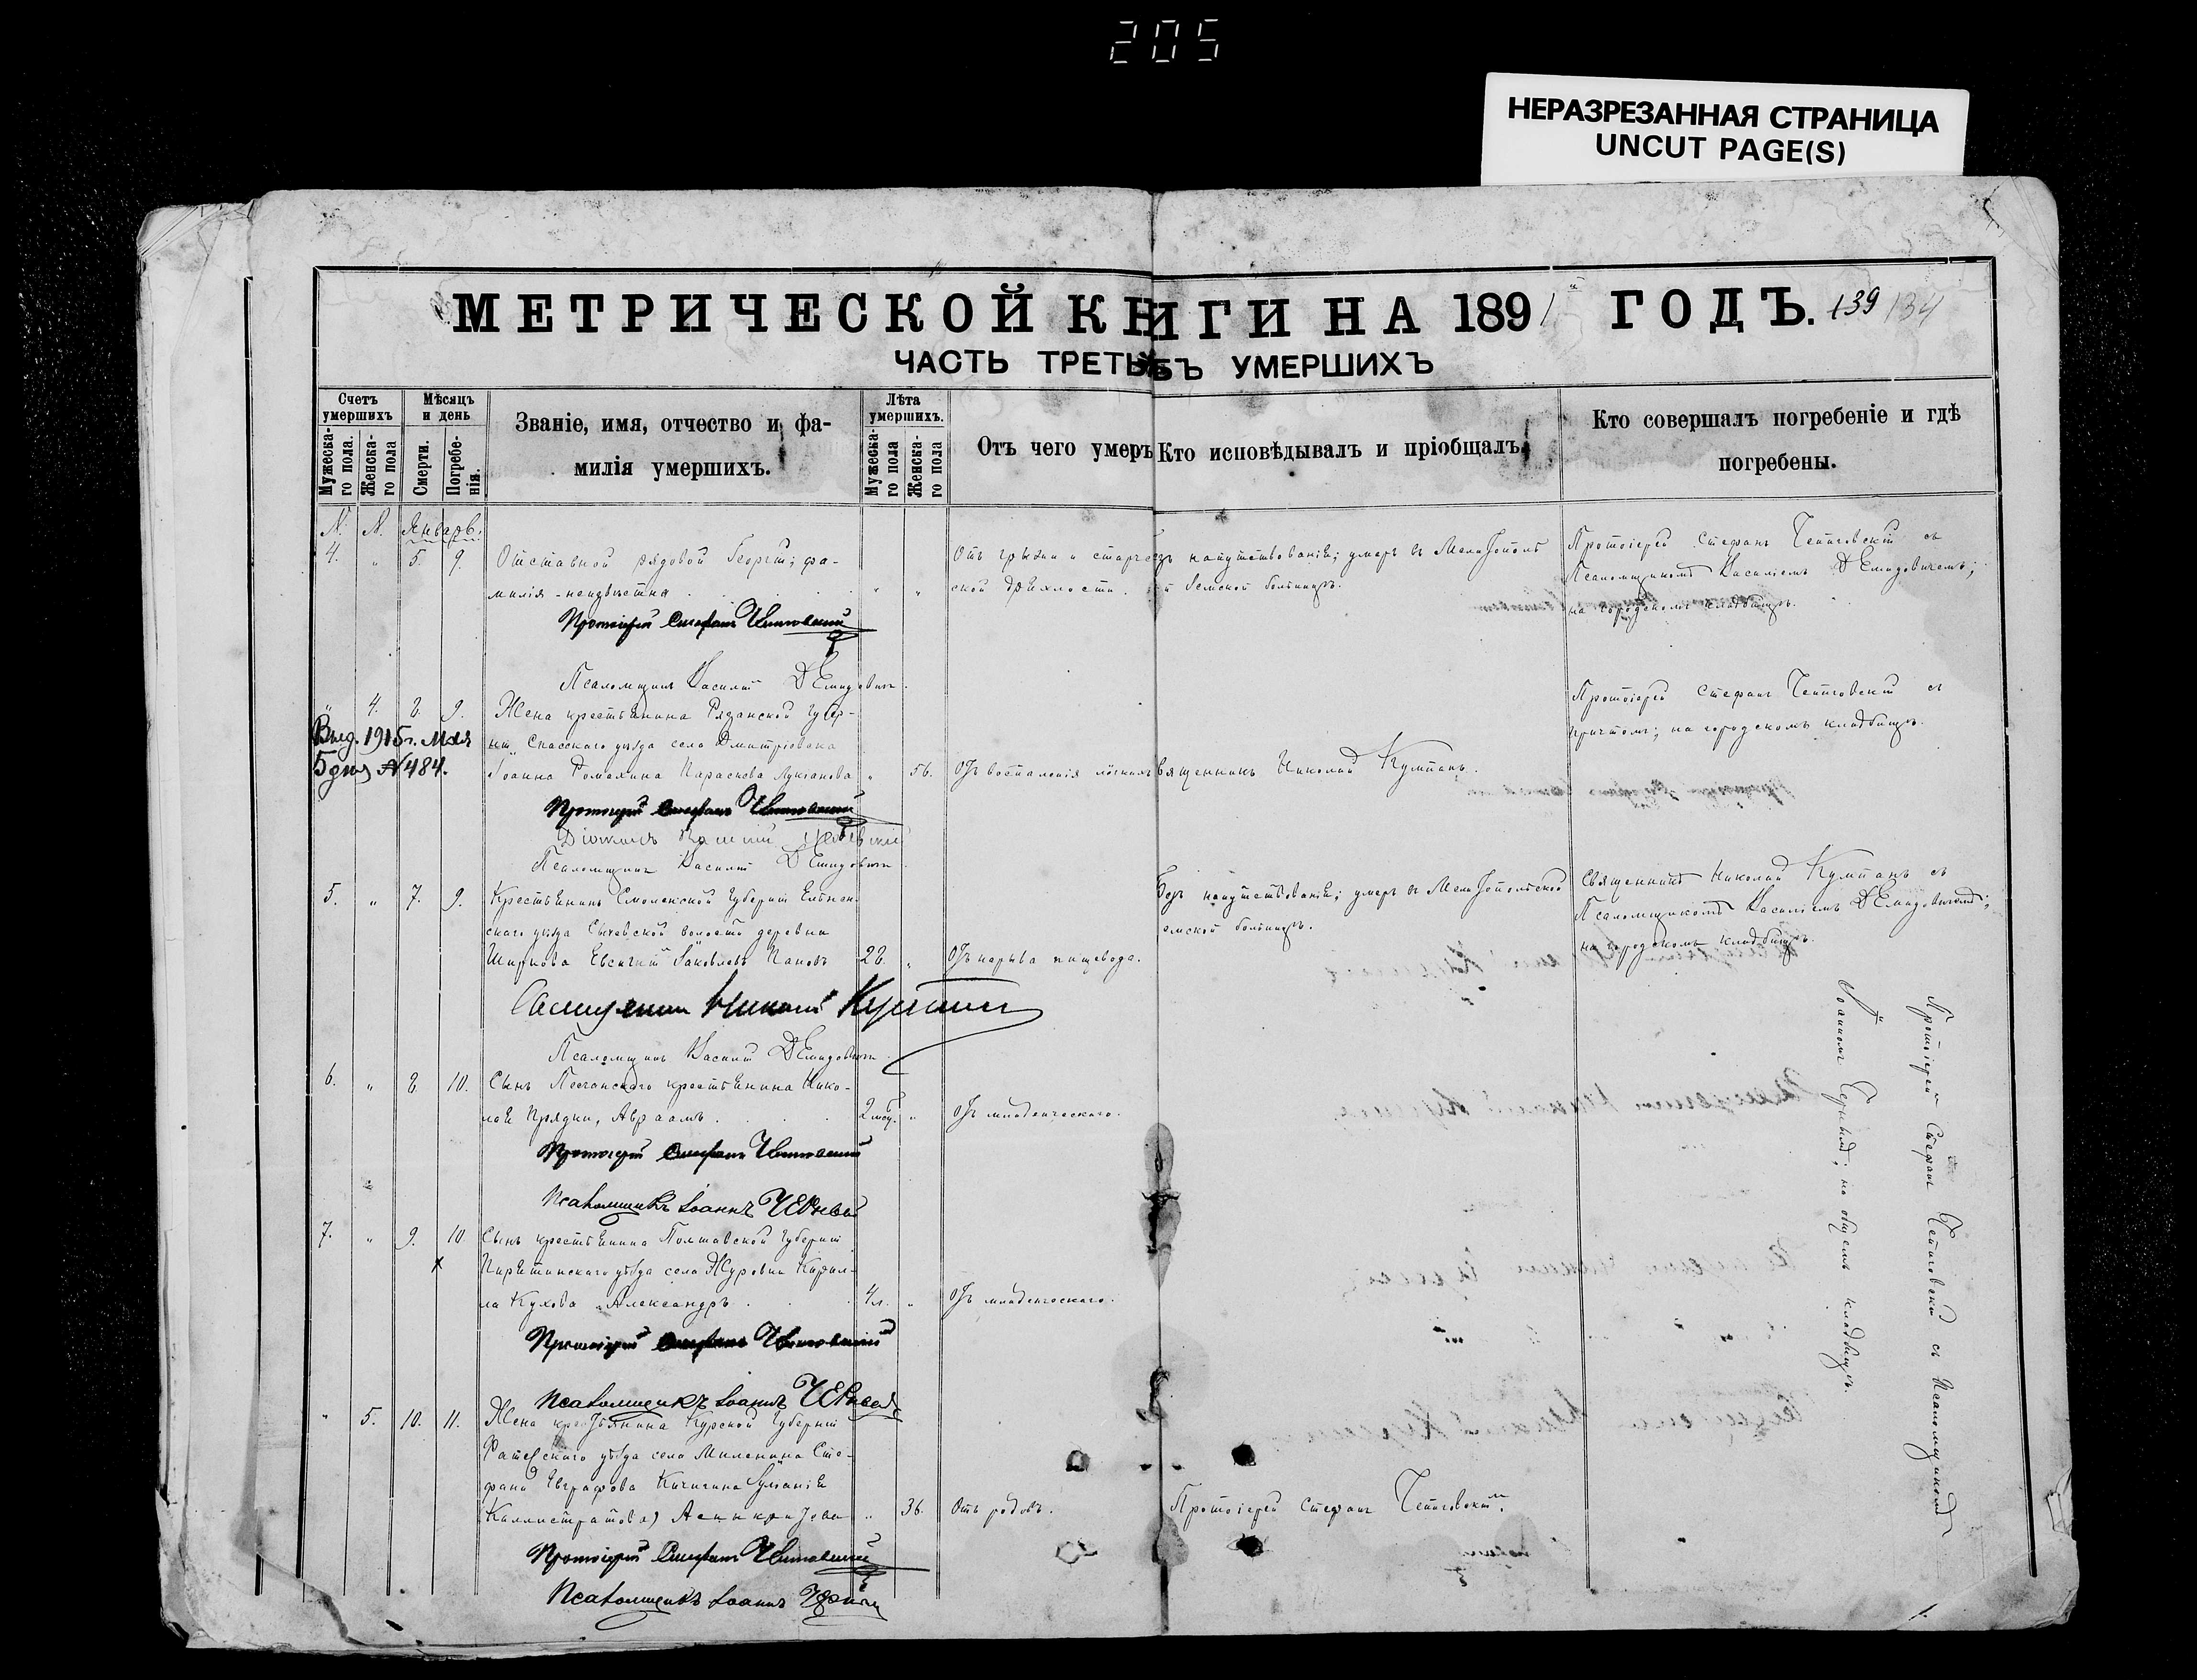 205
НЕРАЗРЕЗАННАЯ СТРАНИЦА
UNCUT PAGE(S)
МЕТРИЧЕСКОЙ КНИГИ НА 1891 ГОДЪ. 139 134
ЧАСТЬ ТРЕТЬ УМЕРШИХЪ
Счетъ умершихъ
Мужеска-го пола.
Женска-го пола
Мѣсяцъ и день
Смерти.
Погребе-нія.
Званіе, имя, отчество и фа-
милія умершихъ.
Лѣта умершихъ.
Мужеска-го пола
Женска-го пола
Отъ чего умеръ
Кто исповѣдывалъ и пріобщалъ
Кто совершалъ погребеніе и гдѣ
погребены.
N. N. Январь.
4. " 5. 9. Отставной рядовой Георгій; фа-
милія - неизвѣстна " "
Отъ грыжи и старче
ской дряхлости.
напутствованія; умеръ въ Мелитополь
й Земской больницѣ.
Протоіерей Стефанъ съ
Псаломщикомъ Василіемъ Демидовичемъ;
на городскомъ кладбищѣ.
Протоіерей Стефанъ
Псаломщикъ Василій Демидовичъ
" 4. 8. 9. Жена крестьянина Рязанской Губер-
ніи Спасскаго уѣзда села Дмитріевка
Іоанна Парасковія Лукіанова " 56. Отъ воспаленія легкихъ
Священникъ Николай Кумпанъ.
Протоіерей Стефанъ съ
причтомъ; на городскомъ кладбищѣ.
Выд. 1915 г. Мая
5 дня N 484.
Протоіерей Стефанъ
Діаконъ
Псаломщикъ Василій Демидовичъ
5. " 7. 9. Крестьянинъ Смоленской Губерніи Ельнин-
скаго уѣзда волости деревни
Яковлевъ Пановъ 28. " Отъ нарыва пищевода.
Безъ напутствованія; умеръ въ Мелитопольской
емской больницѣ.
Священникъ Николай Кумпанъ съ
Псаломщикомъ Василіемъ Демидовичемъ;
на городскомъ кладбищѣ.
Священникъ Николай Кумпанъ
Псаломщикъ Василій Демидовичъ
6. " 8. 10. Сынъ крестьянина Нико-
лая Прядки, Авраамъ. 2 мѣс. " Отъ младенческаго.
Протоіерей Стефанъ
Псаломщикъ Іоаннъ Черный
7. " 9. 10. Сынъ крестьянина Полтавской Губерніи
Пирятинскаго уѣзда села Журовка Кирил-
ла Кухова Александръ. 4 л. " Отъ младенческаго.
Протоіерей Стефанъ
Псаломщикъ Іоаннъ Черный
" 5. 10. 11. Жена крестьянина Курской Губерніи
Фатежскаго уѣзда села Миленина Сте-
фана Евграфова Кичигина
Каллистратова) " 36. Отъ родовъ.
Протоіерей Стефанъ
Протоіерей Стефанъ
Псаломщикъ Іоаннъ Черный
Протоіерей Стефанъ съ Псаломщикомъ
Іоанномъ Чернымъ; на общемъ кладбищѣ.